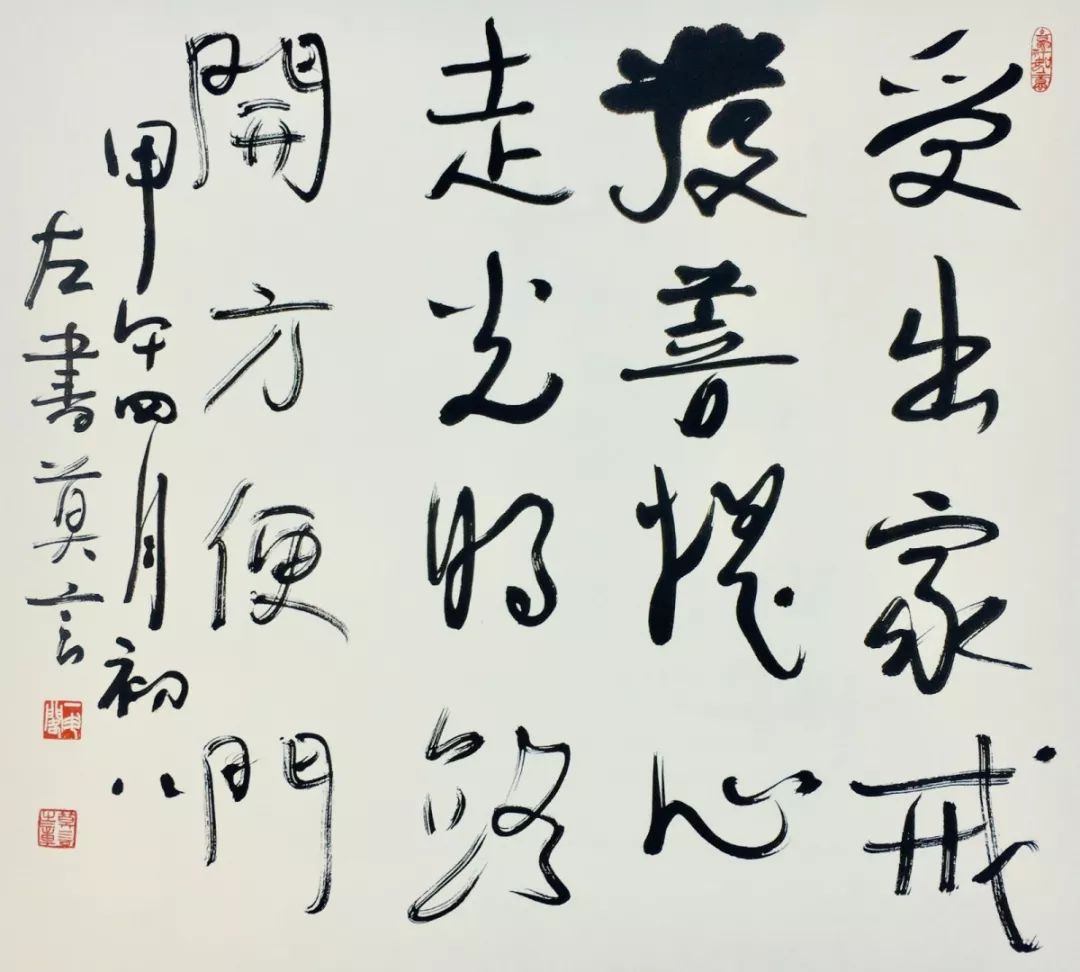 受出家戒
發菩提心
走光明路
開方便門
甲午四月初八
左書莫言